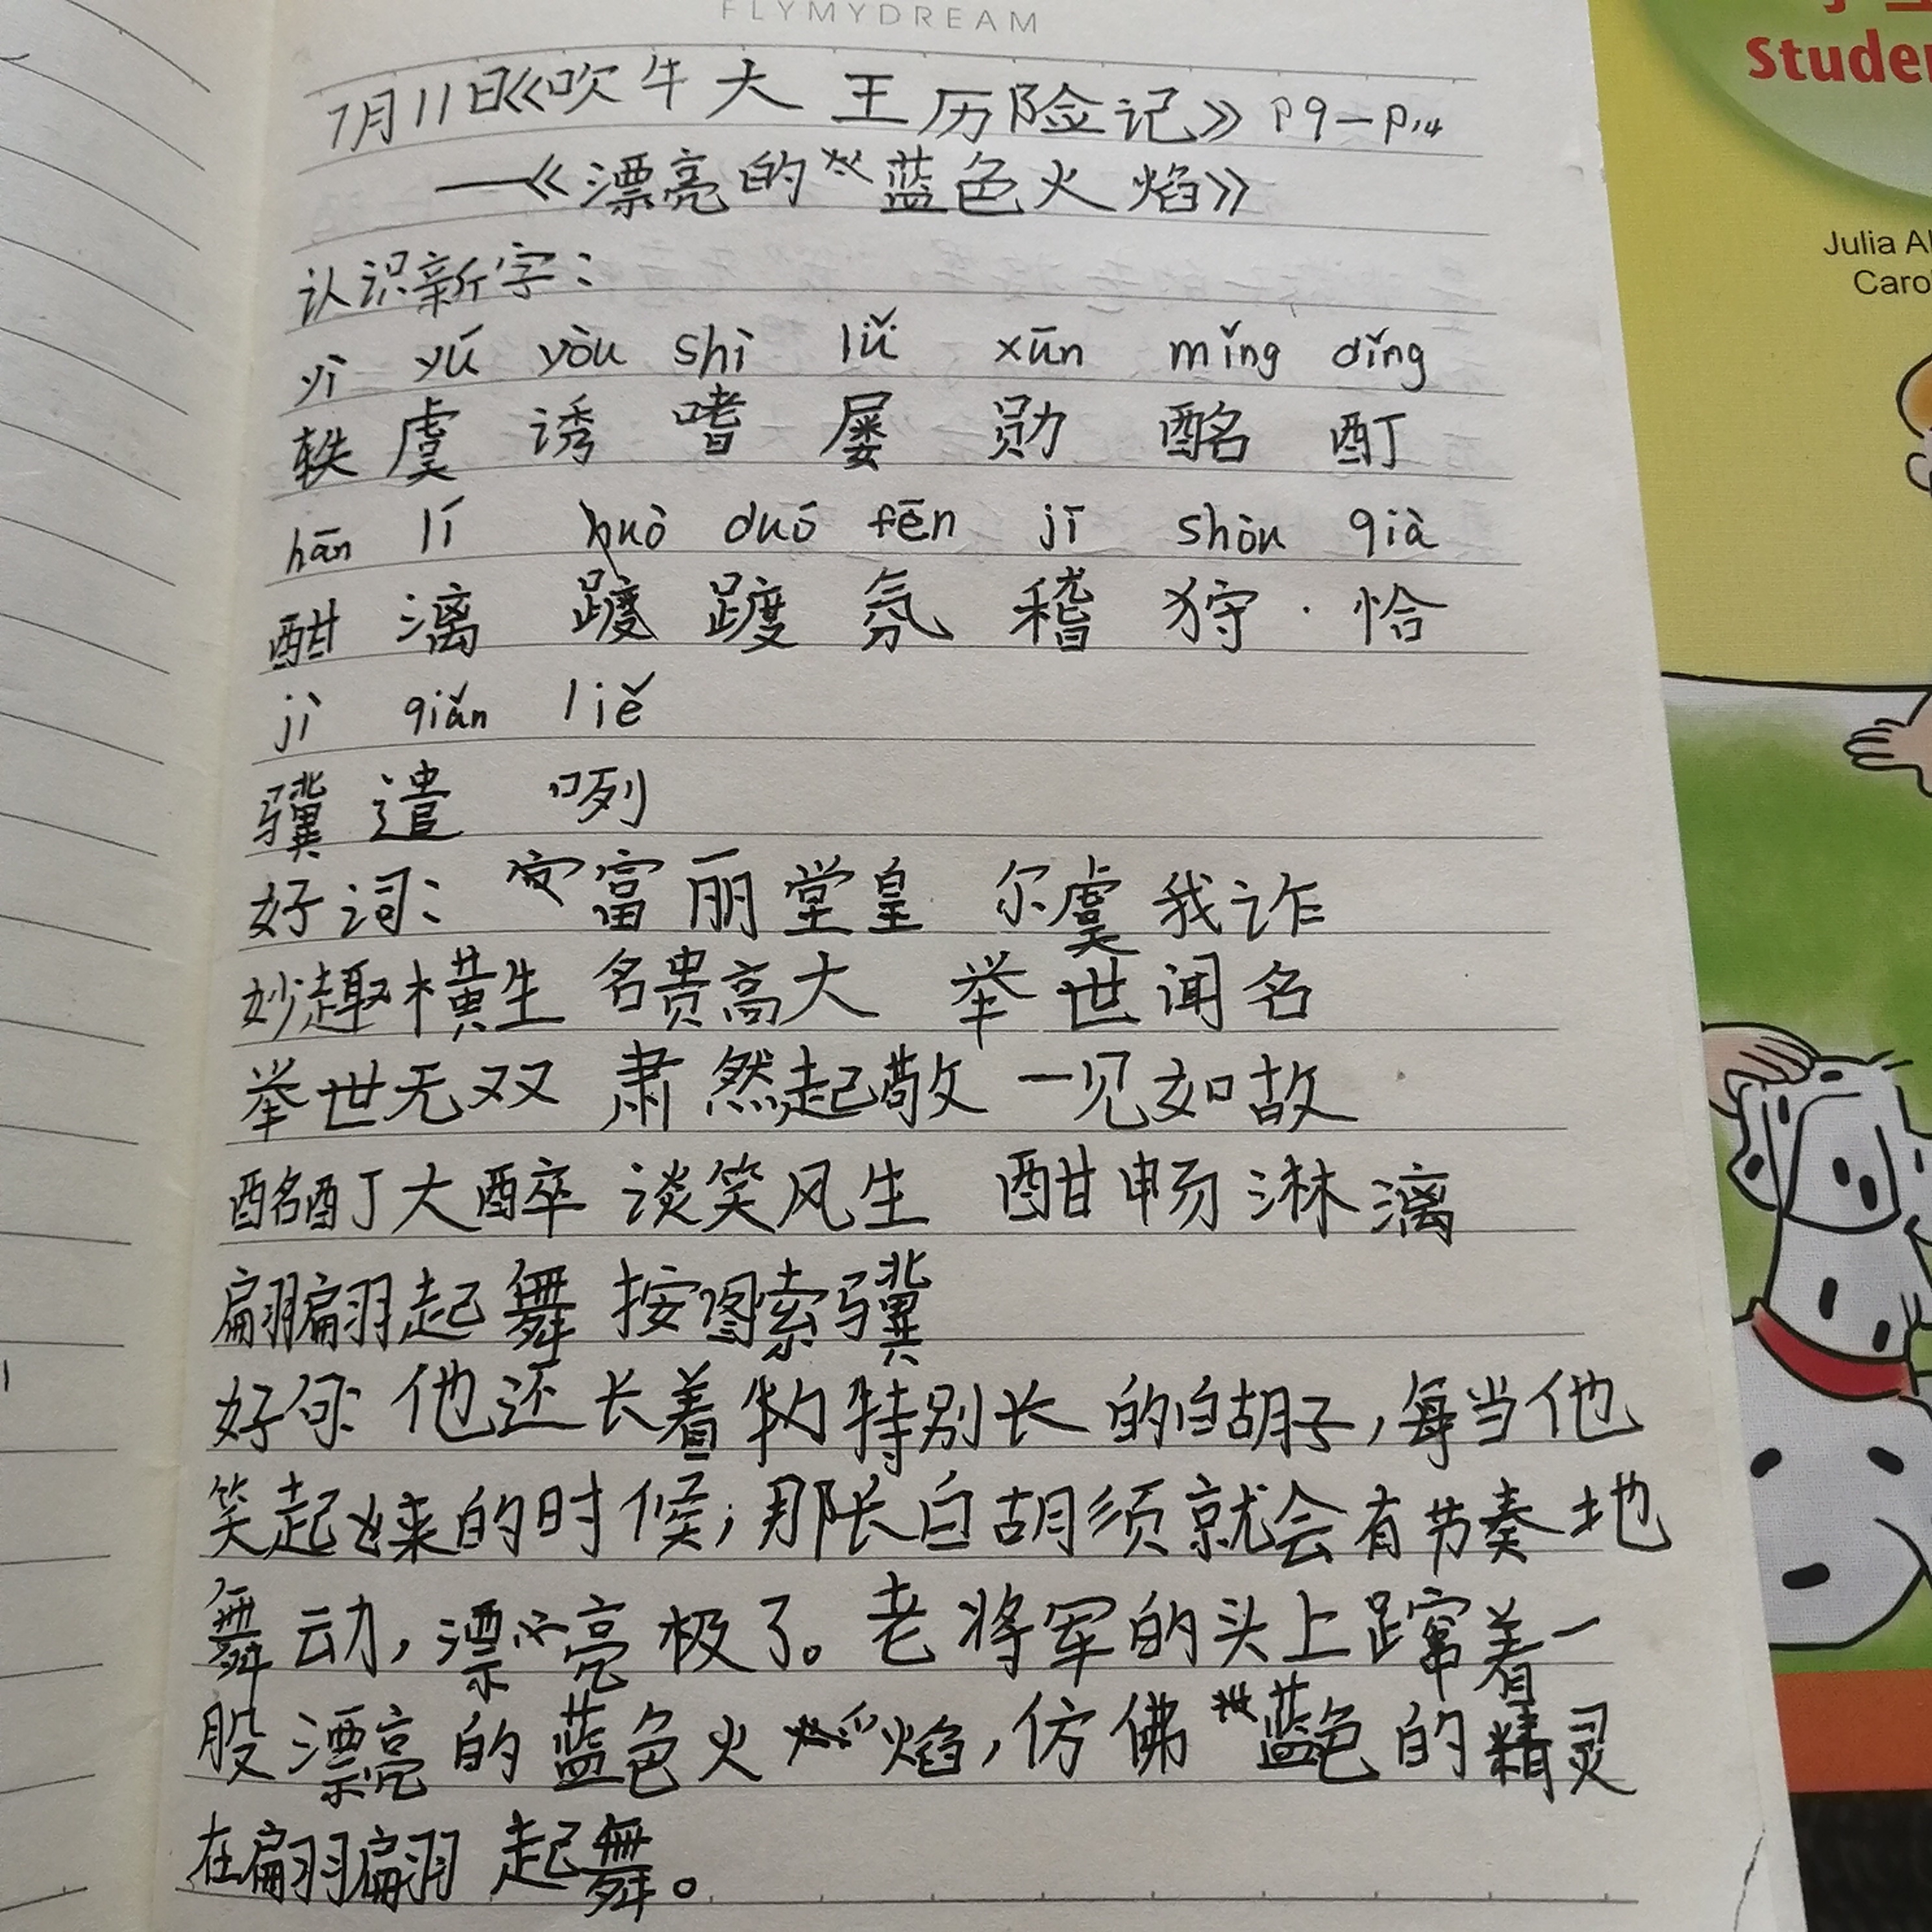 FLYMYDREAM
7月11日《吹牛大王历险记》P9—P14
——《漂亮的蓝色火焰》
认识新字：
yì yú yòu shì lǚ xūn mǐng dǐng
轶 虞 诱 嗜 屡 勋 酩 酊
hān lí duó fēn jī shòu qià
酣 漓 踱 氛 稽 狩 恰
jì qiǎn liě
骥 遣 咧
好词：富丽堂皇 尔虞我诈
妙趣横生 名贵高大 举世闻名
举世无双 肃然起敬 一见如故
酩酊大醉 谈笑风生 酣畅淋漓
翩翩起舞 按图索骥
好句：他还长着特别长的白胡子，每当他
笑起来的时候，那长白胡须就会有节奏地
舞动，漂亮极了。老将军的头上蹿着一
股漂亮的蓝色火焰，仿佛蓝色的精灵
在翩翩起舞。
Studen
Julia Al
Caro